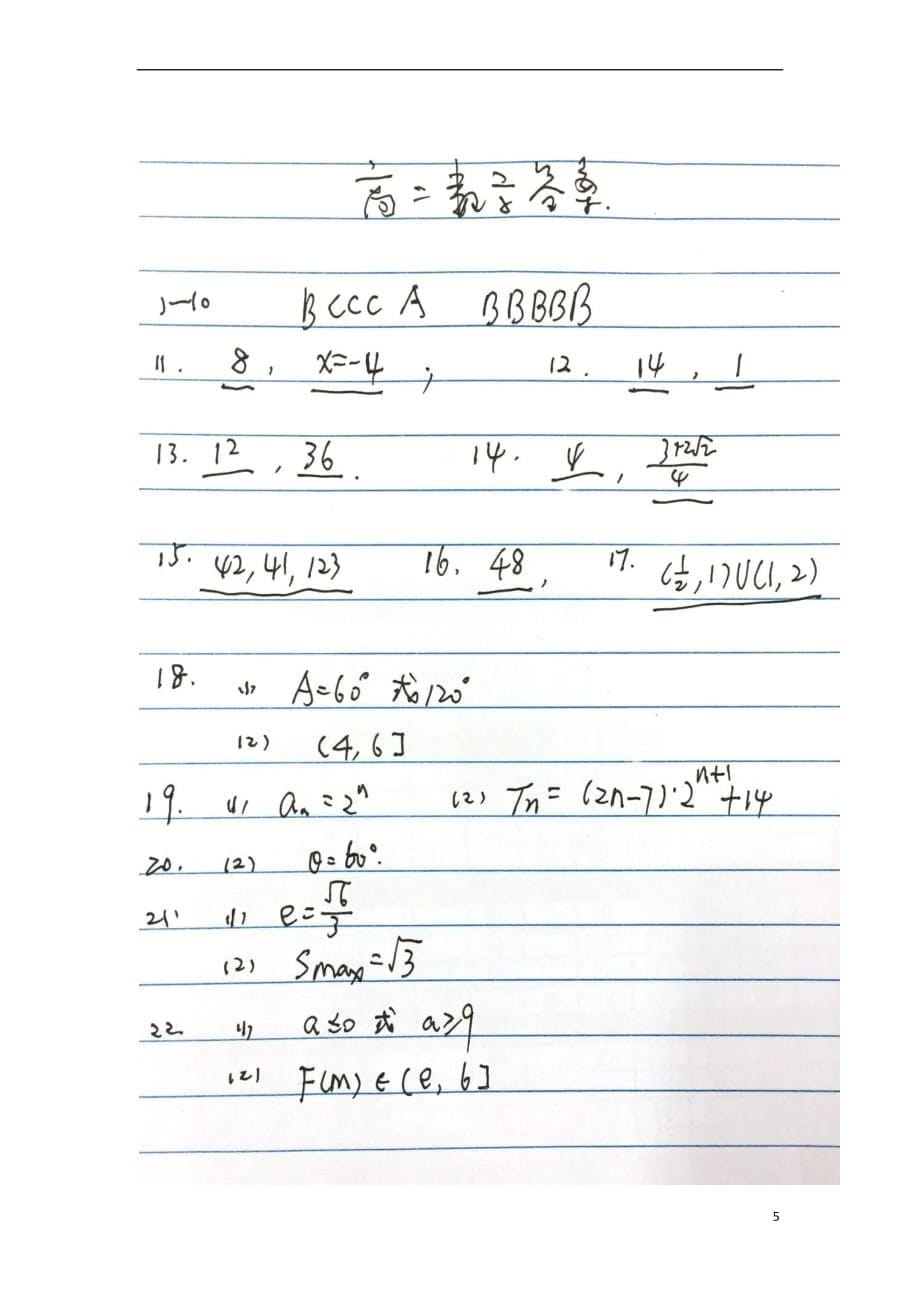 高二数学答案.
1-10 BCCCA BBBBB
11. 8, x=-4; 12. 14, 1
13. 12, 36. 14. 4, (3+2√2)/4
15. 42, 41, 123 16. 48, 17. (1/2, 1)∪(1, 2)
18. (1) A=60° 或120°
(2) (4, 6]
19. (1) aₙ=2ⁿ (2) Tₙ=(2n-7)·2ⁿ⁺¹+14
20. (2) θ=60°.
21. (1) e=√6/3
(2) Smax=√3
22 (1) a≤0 或 a≥9
(2) F(m)∈(e, 6]
5